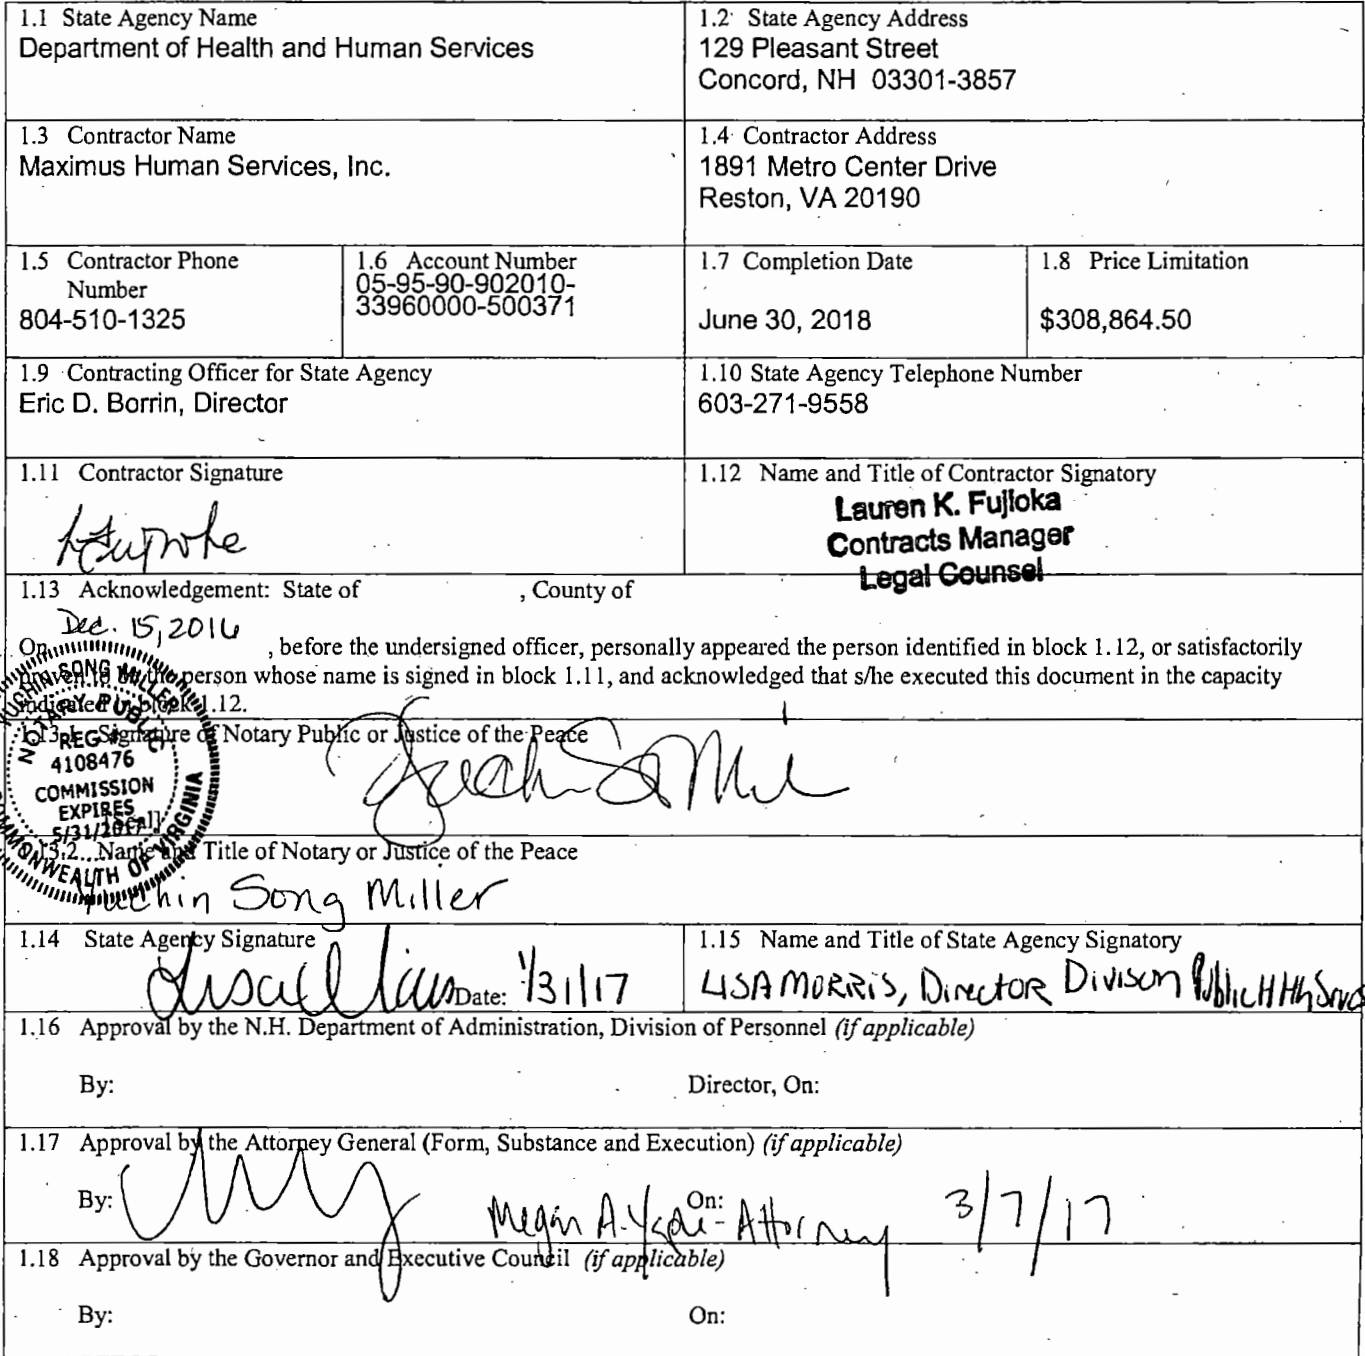 1.1 State Agency Name
Department of Health and Human Services
1.2 State Agency Address
129 Pleasant Street
Concord, NH 03301-3857
1.3 Contractor Name
Maximus Human Services, Inc.
1.4 Contractor Address
1891 Metro Center Drive
Reston, VA 20190
1.5 Contractor Phone
Number
804-510-1325
1.6 Account Number
05-95-90-902010-
33960000-500371
1.7 Completion Date
June 30, 2018
1.8 Price Limitation
$308,864.50
1.9 Contracting Officer for State Agency
Eric D. Borrin, Director
1.10 State Agency Telephone Number
603-271-9558
1.11 Contractor Signature
1.12 Name and Title of Contractor Signatory
Lauren K. Fujioka
Contracts Manager
Legal Counsel
1.13 Acknowledgement: State of , County of
Dec. 15, 2016
On , before the undersigned officer, personally appeared the person identified in block 1.12, or satisfactorily
proven to be the person whose name is signed in block 1.11, and acknowledged that s/he executed this document in the capacity
indicated in block 1.12.
1.13.1 Signature of Notary Public or Justice of the Peace
SONG MILLER
NOTARY PUBLIC
REG #
4108476
COMMISSION
EXPIRES
5/31/2017
COMMONWEALTH OF VIRGINIA
[Seal]
1.13.2 Name and Title of Notary or Justice of the Peace
Yuchin Song Miller
1.14 State Agency Signature
Date: 1/31/17
1.15 Name and Title of State Agency Signatory
LISA MORRIS, Director Divison Public Hlth Srvcs
1.16 Approval by the N.H. Department of Administration, Division of Personnel (if applicable)
By: Director, On:
1.17 Approval by the Attorney General (Form, Substance and Execution) (if applicable)
By: On:
Megan A. - Attorney 3/7/17
1.18 Approval by the Governor and Executive Council (if applicable)
By: On: